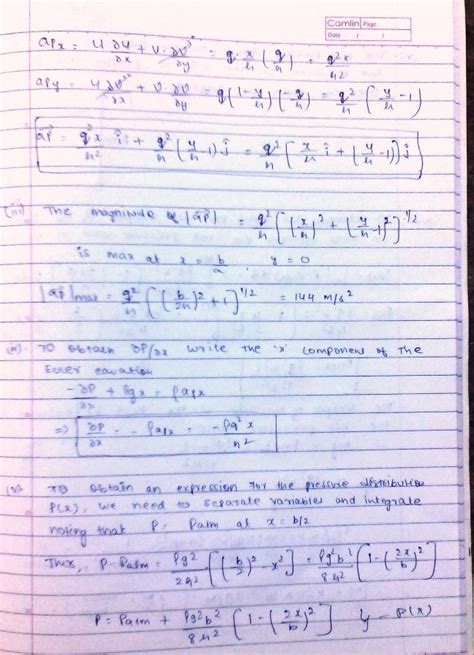 Camlin Page
Date / /
aPx = u ∂u/∂x + v ∂v/∂y = q · x/h (q/h) = q²x/h²
aPy = u ∂v/∂x + v ∂v/∂y = q(1 - y/h)(-q/h) = q²/h (y/h - 1)
aP = q²x/h² î + q²/h (y/h - 1) ĵ = q²/h [x/h î + (y/h - 1) ĵ]
(iii) The magnitude of |aP| = q²/h [(x/h)² + (y/h - 1)²]^1/2
is max at x = b/2, y = 0
|aP|max = q²/h [(b/2h)² + 1]^1/2 = 144 m/s²
To obtain ∂P/∂x write the 'x' component of the
Euler equation
-∂P/∂x + ρgx = ρapx
=> ∂P/∂x = - ρapx = -ρq²x/h²
To obtain an expression for the pressure distribution
P(x), we need to separate variables and integrate
noting that P = Patm at x = b/2
Thus, P - Patm = ρq²/2h² [(b/2)² - x²] = ρq²b²/8h² [1 - (2x/b)²]
P = Patm + ρq²b²/8h² [1 - (2x/b)²] P(x)